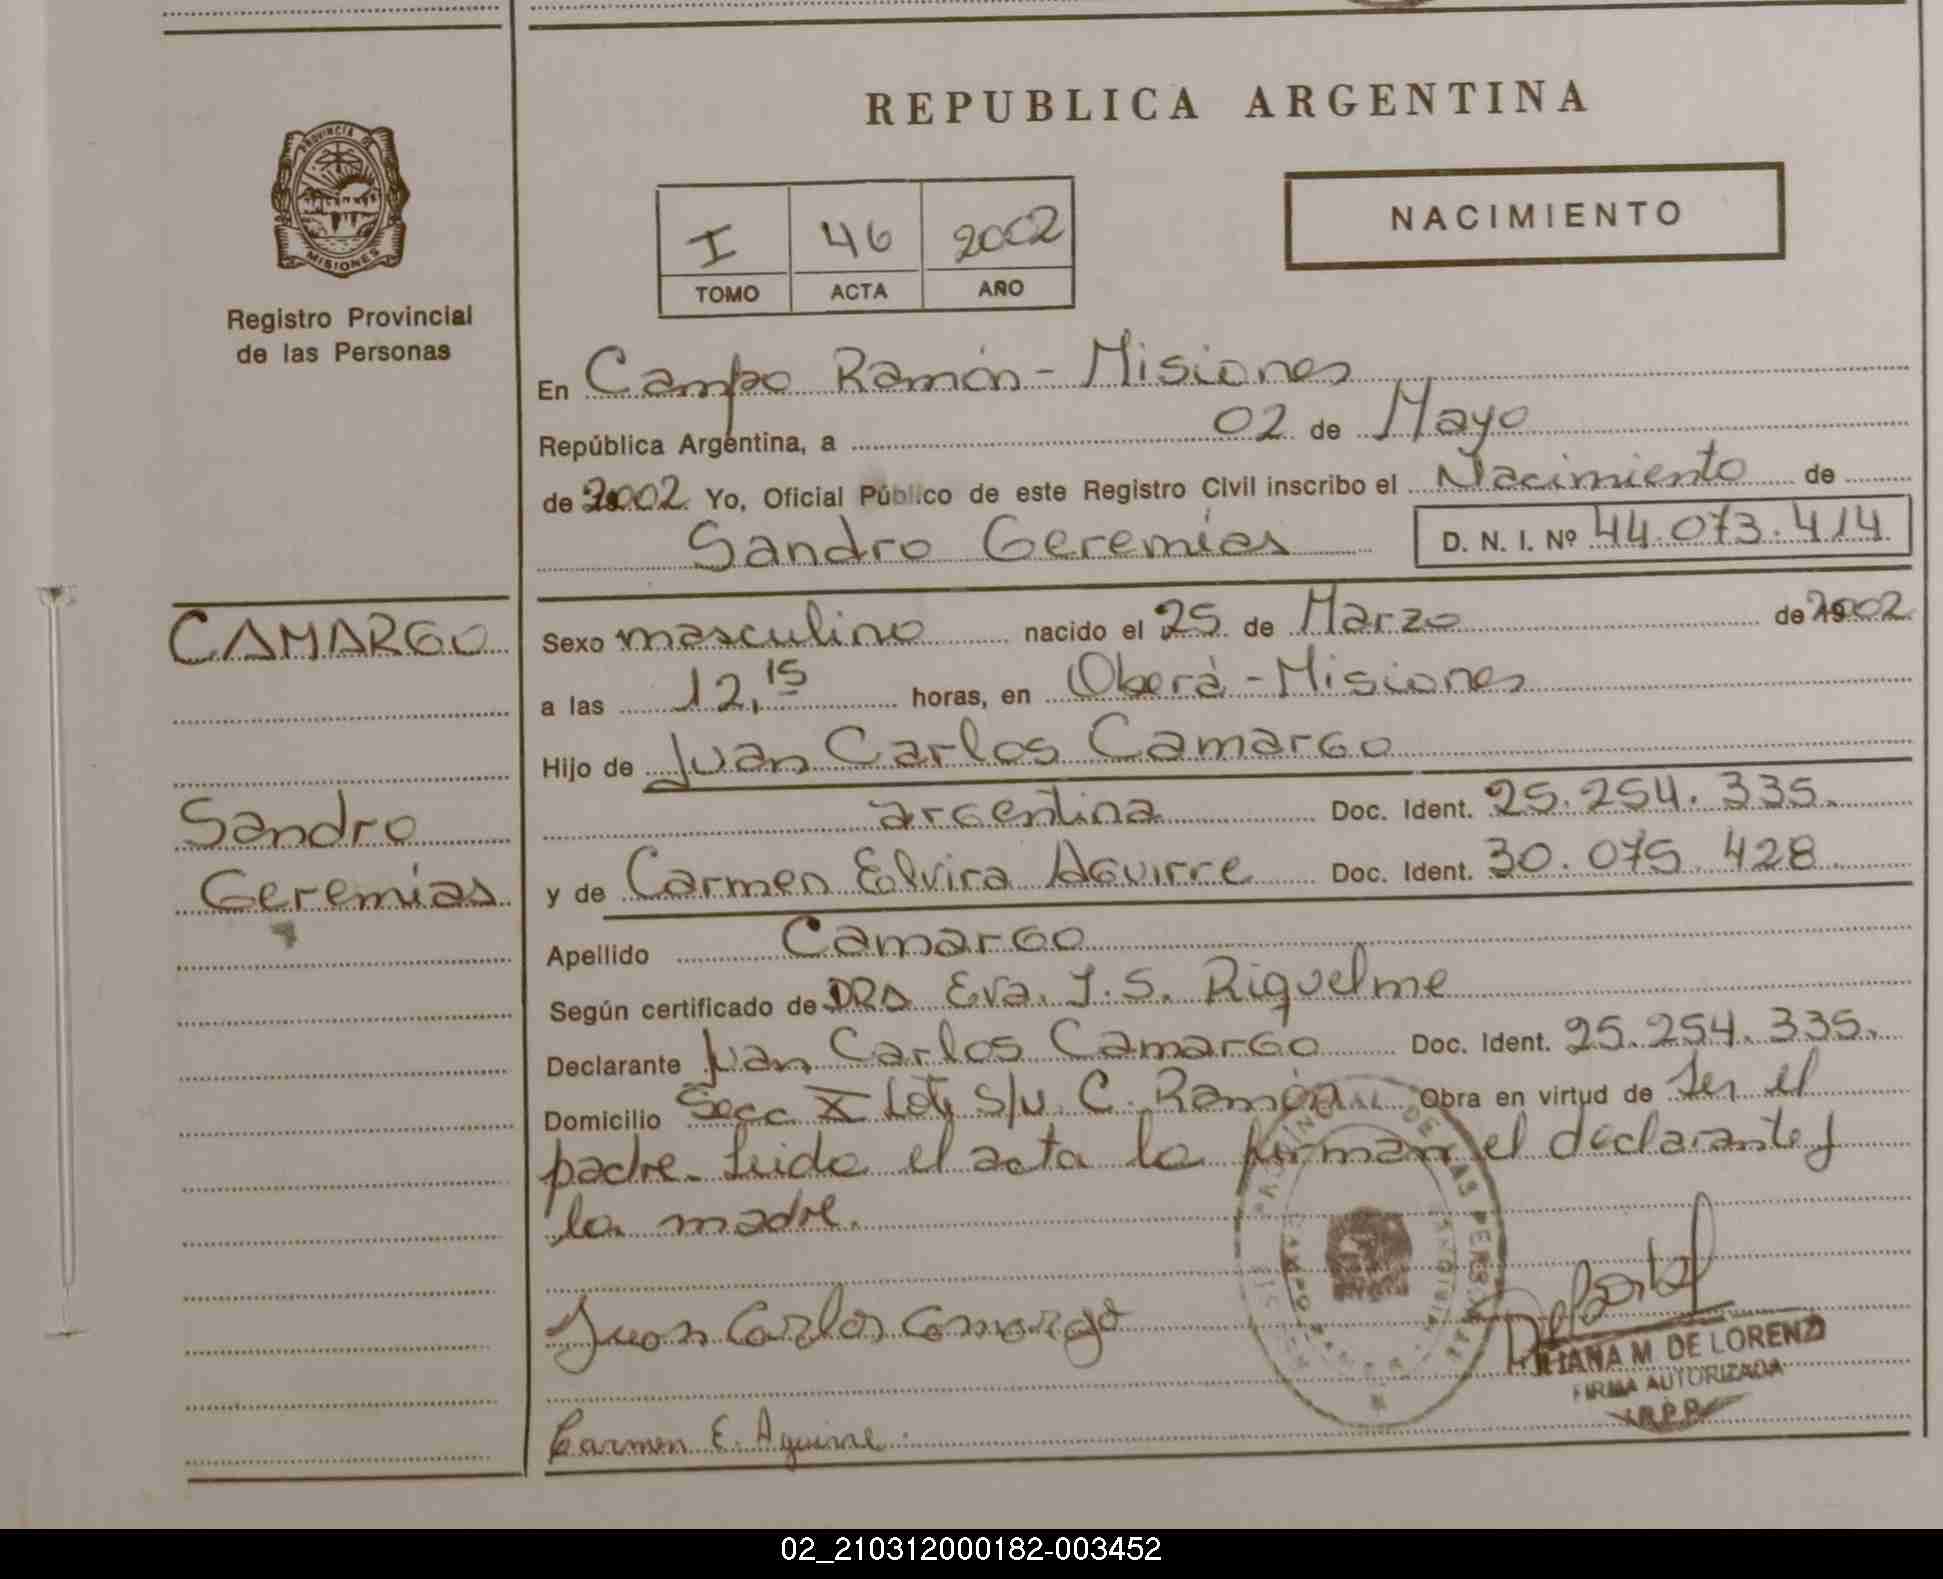 PROVINCIA DE
MISIONES
Registro Provincial
de las Personas
CAMARGO
Sandro
Geremías
REPUBLICA ARGENTINA
I 46 2002
TOMO ACTA AÑO
NACIMIENTO
En Campo Ramón - Misiones
República Argentina, a 02 de Mayo
de 2002 Yo, Oficial Público de este Registro Civil inscribo el Nacimiento de
Sandro Geremías D. N. I. Nº 44.073.414
Sexo masculino nacido el 25 de Marzo de 2002
a las 12,15 horas, en Oberá - Misiones
Hijo de Juan Carlos Camargo
argentina Doc. Ident. 25.254.335.
y de Carmen Elvira Aguirre Doc. Ident. 30.075.428
Apellido Camargo
Según certificado de DRA Eva. J. S. Riquelme
Declarante Juan Carlos Camargo Doc. Ident. 25.254.335.
Domicilio Secc X Lote S/u C. Ramón Obra en virtud de ser el
padre. Leída el acta la firman el declarante y
la madre.
Juan Carlos Camargo
Carmen E. Aguirre
LILIANA M. DE LORENZI
FIRMA AUTORIZADA
R.P.P.
02_210312000182-003452